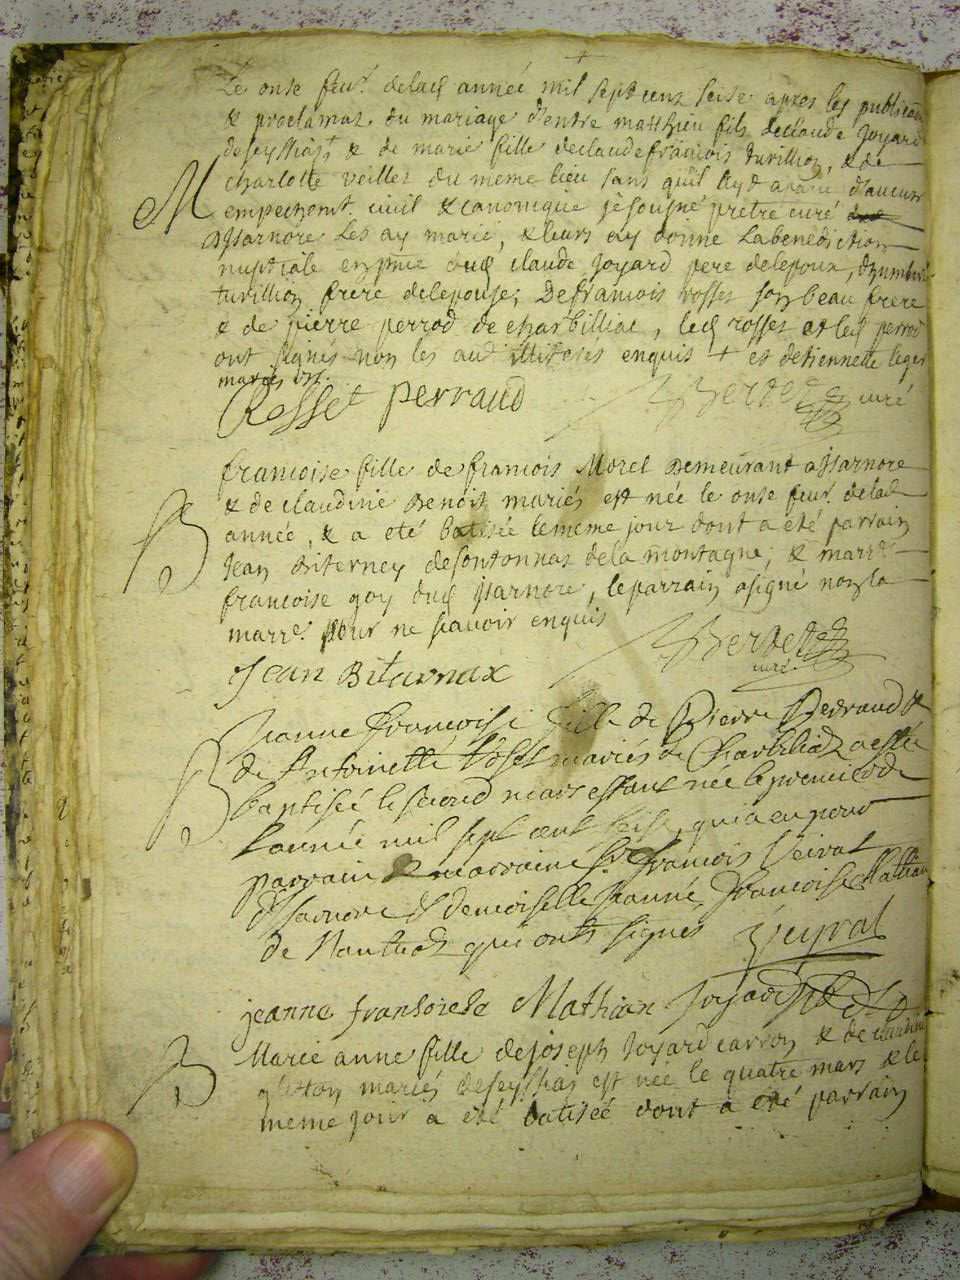 Le onse feur. delad année mil sept cens seise apres les publicaõn
& proclamaz. du mariage d'entre matthieu fils declaude Joyard
deseyssiat & de marie fille declaudefrancois turillion, & de
charlotte veillet du meme lieu sans qu'il ayt aparu d'aucun
M empechemt. civil & canonique je sousigné pretre curé
dIsarnore Les ay marié, & leurs ay donné Labenediction
nuptiale en pnce dud claude Joyard pere delepoux, dhumbert
turillion frere delepouse; De francois rosset son beau frere
& de pierre perrod de charbilliac, led rosset et led perrod
ont signés non les aud illiterés enquis + et detiennette leger
mariés
Rosset perraud Berdet curé
francoise fille de francois Morel Demeurant aIsarnore
& de claudine Benoit mariés est née le onse feur. delad
B année, & a eté batisée lememe jour dont a eté parrain
Jean Biterney desontonnas dela montagne, & marre.
francoise goy dud Isarnore, leparrain asigné non la
marre. pour ne scavoir enquis
Berdet
curé
Jean Bitarnax
Jeanne francoise fille de Pierre Perraud &
B de Antoinette mariés de Charbiliat a esté
baptisée le second mars estant née le premier de
lannée mil sept cent seise, qui a eu pour
parrain & marraine Sr. francois Veirat
dIsarnore & demoiselle Jeanne francoise Mathian
de Nantua qui onts signés Veyrat
jeanne fransoiese Mathian Joyard
B Marie anne fille dejoseph Joyard carron & de claudine
mariés deseyssiat est née le quatre mars & le
meme jour a eté batisée dont a eté parrain